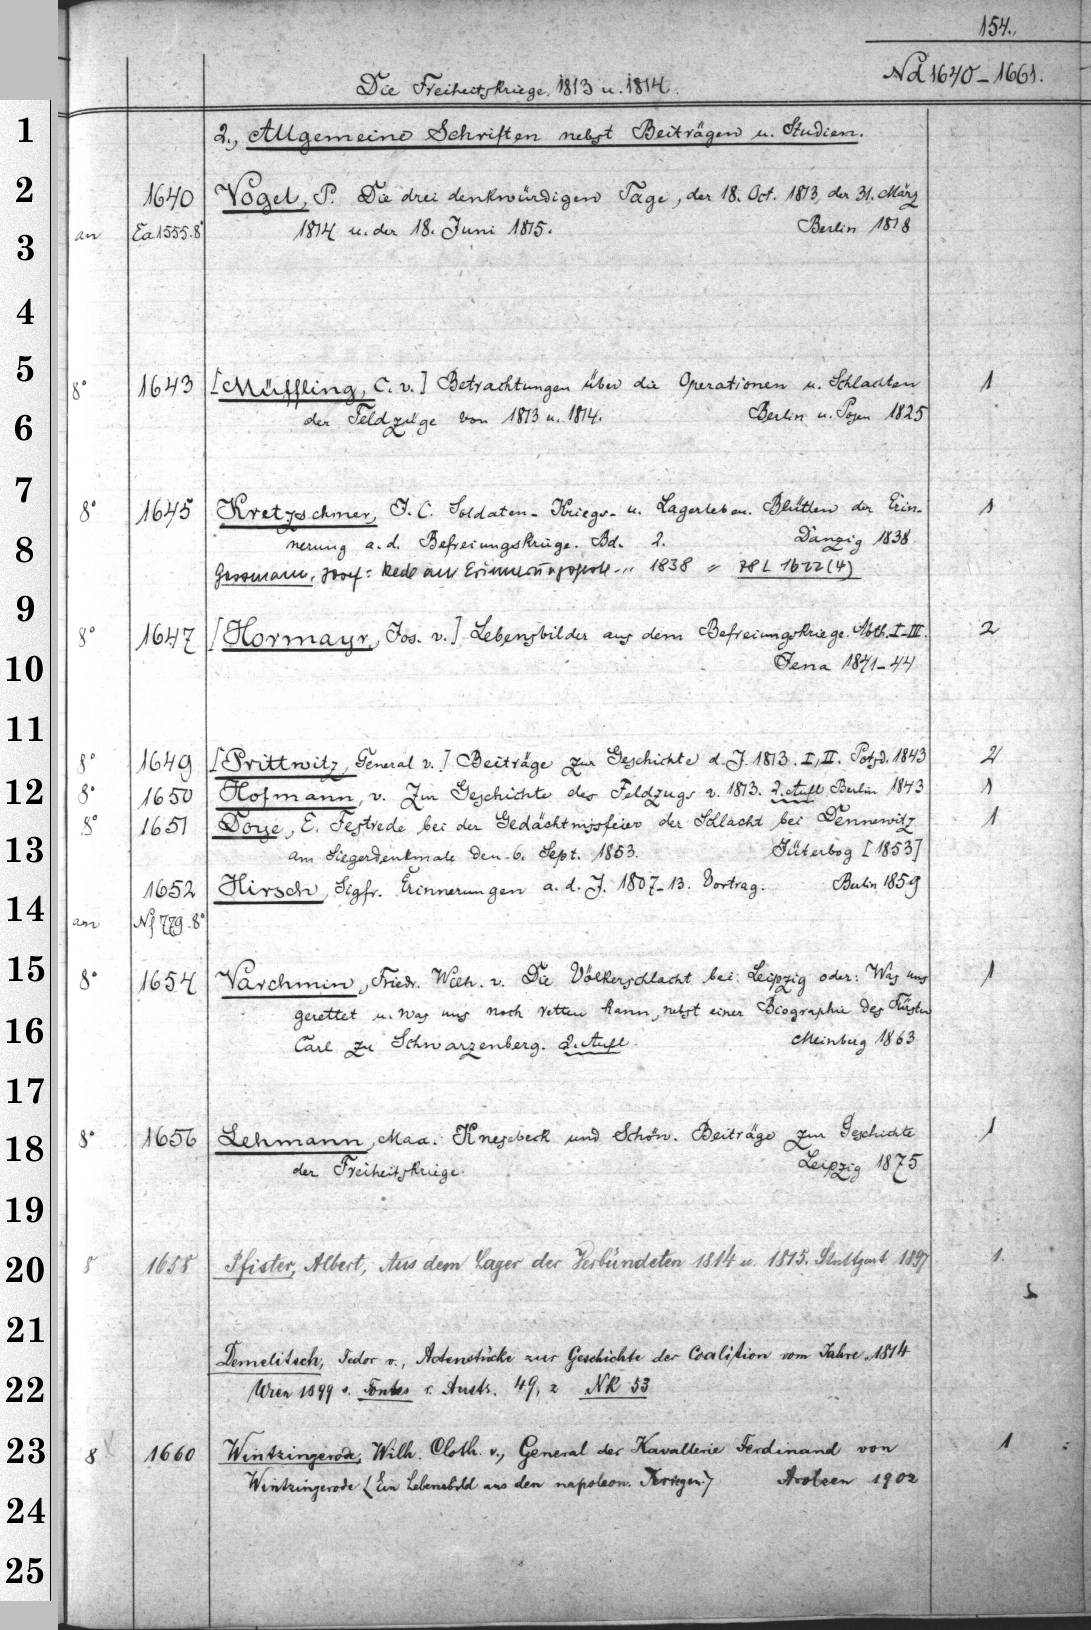 154.
Nd 1640-1661.
Die Freiheitskriege. 1813 u. 1814.
1
2., Allgemeine Schriften nebst Beiträgen u. Studien.
2
1640 Vogel, P. Die drei denkwürdigen Tage, der 18. Oct. 1813, der 31. März
an Ea 1555.8° 1814 u. der 18. Juni 1815. Berlin 1818
3
4
5
8° 1643 [Müffling, C. v.] Betrachtungen über die Operationen u. Schlachten 1
6
der Feldzüge von 1813 u. 1814. Berlin u. Posen 1825
7
8° 1645 Kretzschmer, J. C. Soldaten- Kriegs- u. Lagerleben. Blüthen der Erin- 1
8
nerung a. d. Befreiungskriege. Bd. 2. Danzig 1838
Gossmann, Josef: Rede am 1838 = 78 L 1622(4)
9
8° 1647 [Hormayr, Jos. v.] Lebensbilder aus dem Befreiungskriege. Abth. I-III. 2
10
Jena 1841-44
11
8° 1649 [Prittwitz, General v.] Beiträge zur Geschichte d. J. 1813. I, II. Potsd. 1843 2
12
8° 1650 Hofmann, v. Zur Geschichte des Feldzugs v. 1813. 2. Aufl Berlin 1843 1
8° 1651 Doye, E. Festrede bei der Gedächtnissfeier der Schlacht bei Dennewitz 1
13
am Siegerdenkmale den 6. Sept. 1853. Jüterbog [1853]
1652 Hirsch, Sigfr. Erinnerungen a. d. J. 1807-13. Vortrag. Berlin 1859
14
an Nf 779.8°
15
8° 1654 Varchmin, Friedr. Wilh. v. Die Völkerschlacht bei Leipzig oder: Was uns 1
gerettet u. was uns noch retten kann, nebst einer Biographie des Fürsten
16
Carl zu Schwarzenberg. 2. Aufl. 1863
17
8° 1656 Lehmann, Max. Knesebeck und Schön. Beiträge zur Geschichte 1
18
der Freiheitskriege. Leipzig 1875
19
8 1658 Pfister, Albert, Aus dem Lager der Verbündeten 1814 u. 1815. Stuttgart 1897 1.
20
21
Demelitsch, Fedor v., Actenstücke zur Geschichte der Coalition vom Jahre 1814
22
Wien 1899 s. Fontes r. Austr. 49, 2 NR 53
23
8 1660 Wintzingerode, Wilh. Cloth. v., General der Kavallerie Ferdinand von 1
Wintzingerode (Ein Lebensbild aus den napoleon. Kriegen.) Arolsen 1902
24
25